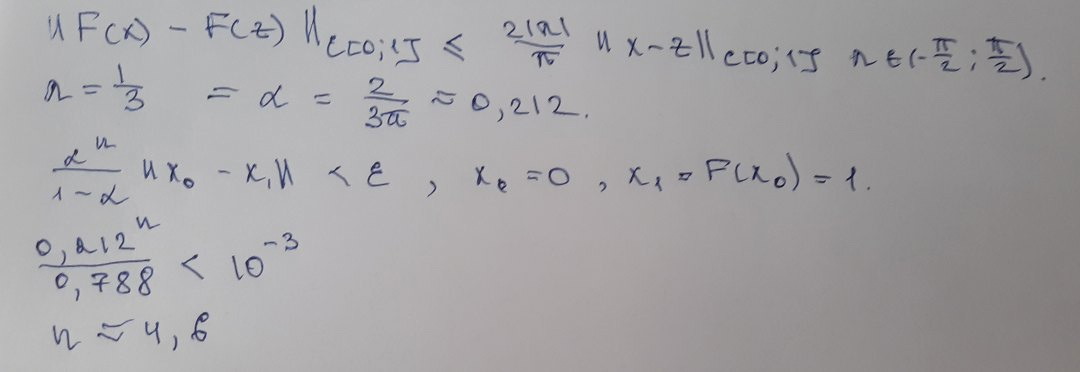 ‖F(x) - F(z)‖_{C[0;1]} ≤ \frac{2|λ|}{π} ‖x-z‖_{C[0;1]} λ ∈ (-\frac{π}{2}; \frac{π}{2}).
λ = \frac{1}{3} = α = \frac{2}{3π} ≈ 0,212.
\frac{α^n}{1-α} ‖x_0 - x_1‖ < ε, x_0 = 0, x_1 = F(x_0) = 1.
\frac{0,212^n}{0,788} < 10^{-3}
n ≈ 4,6